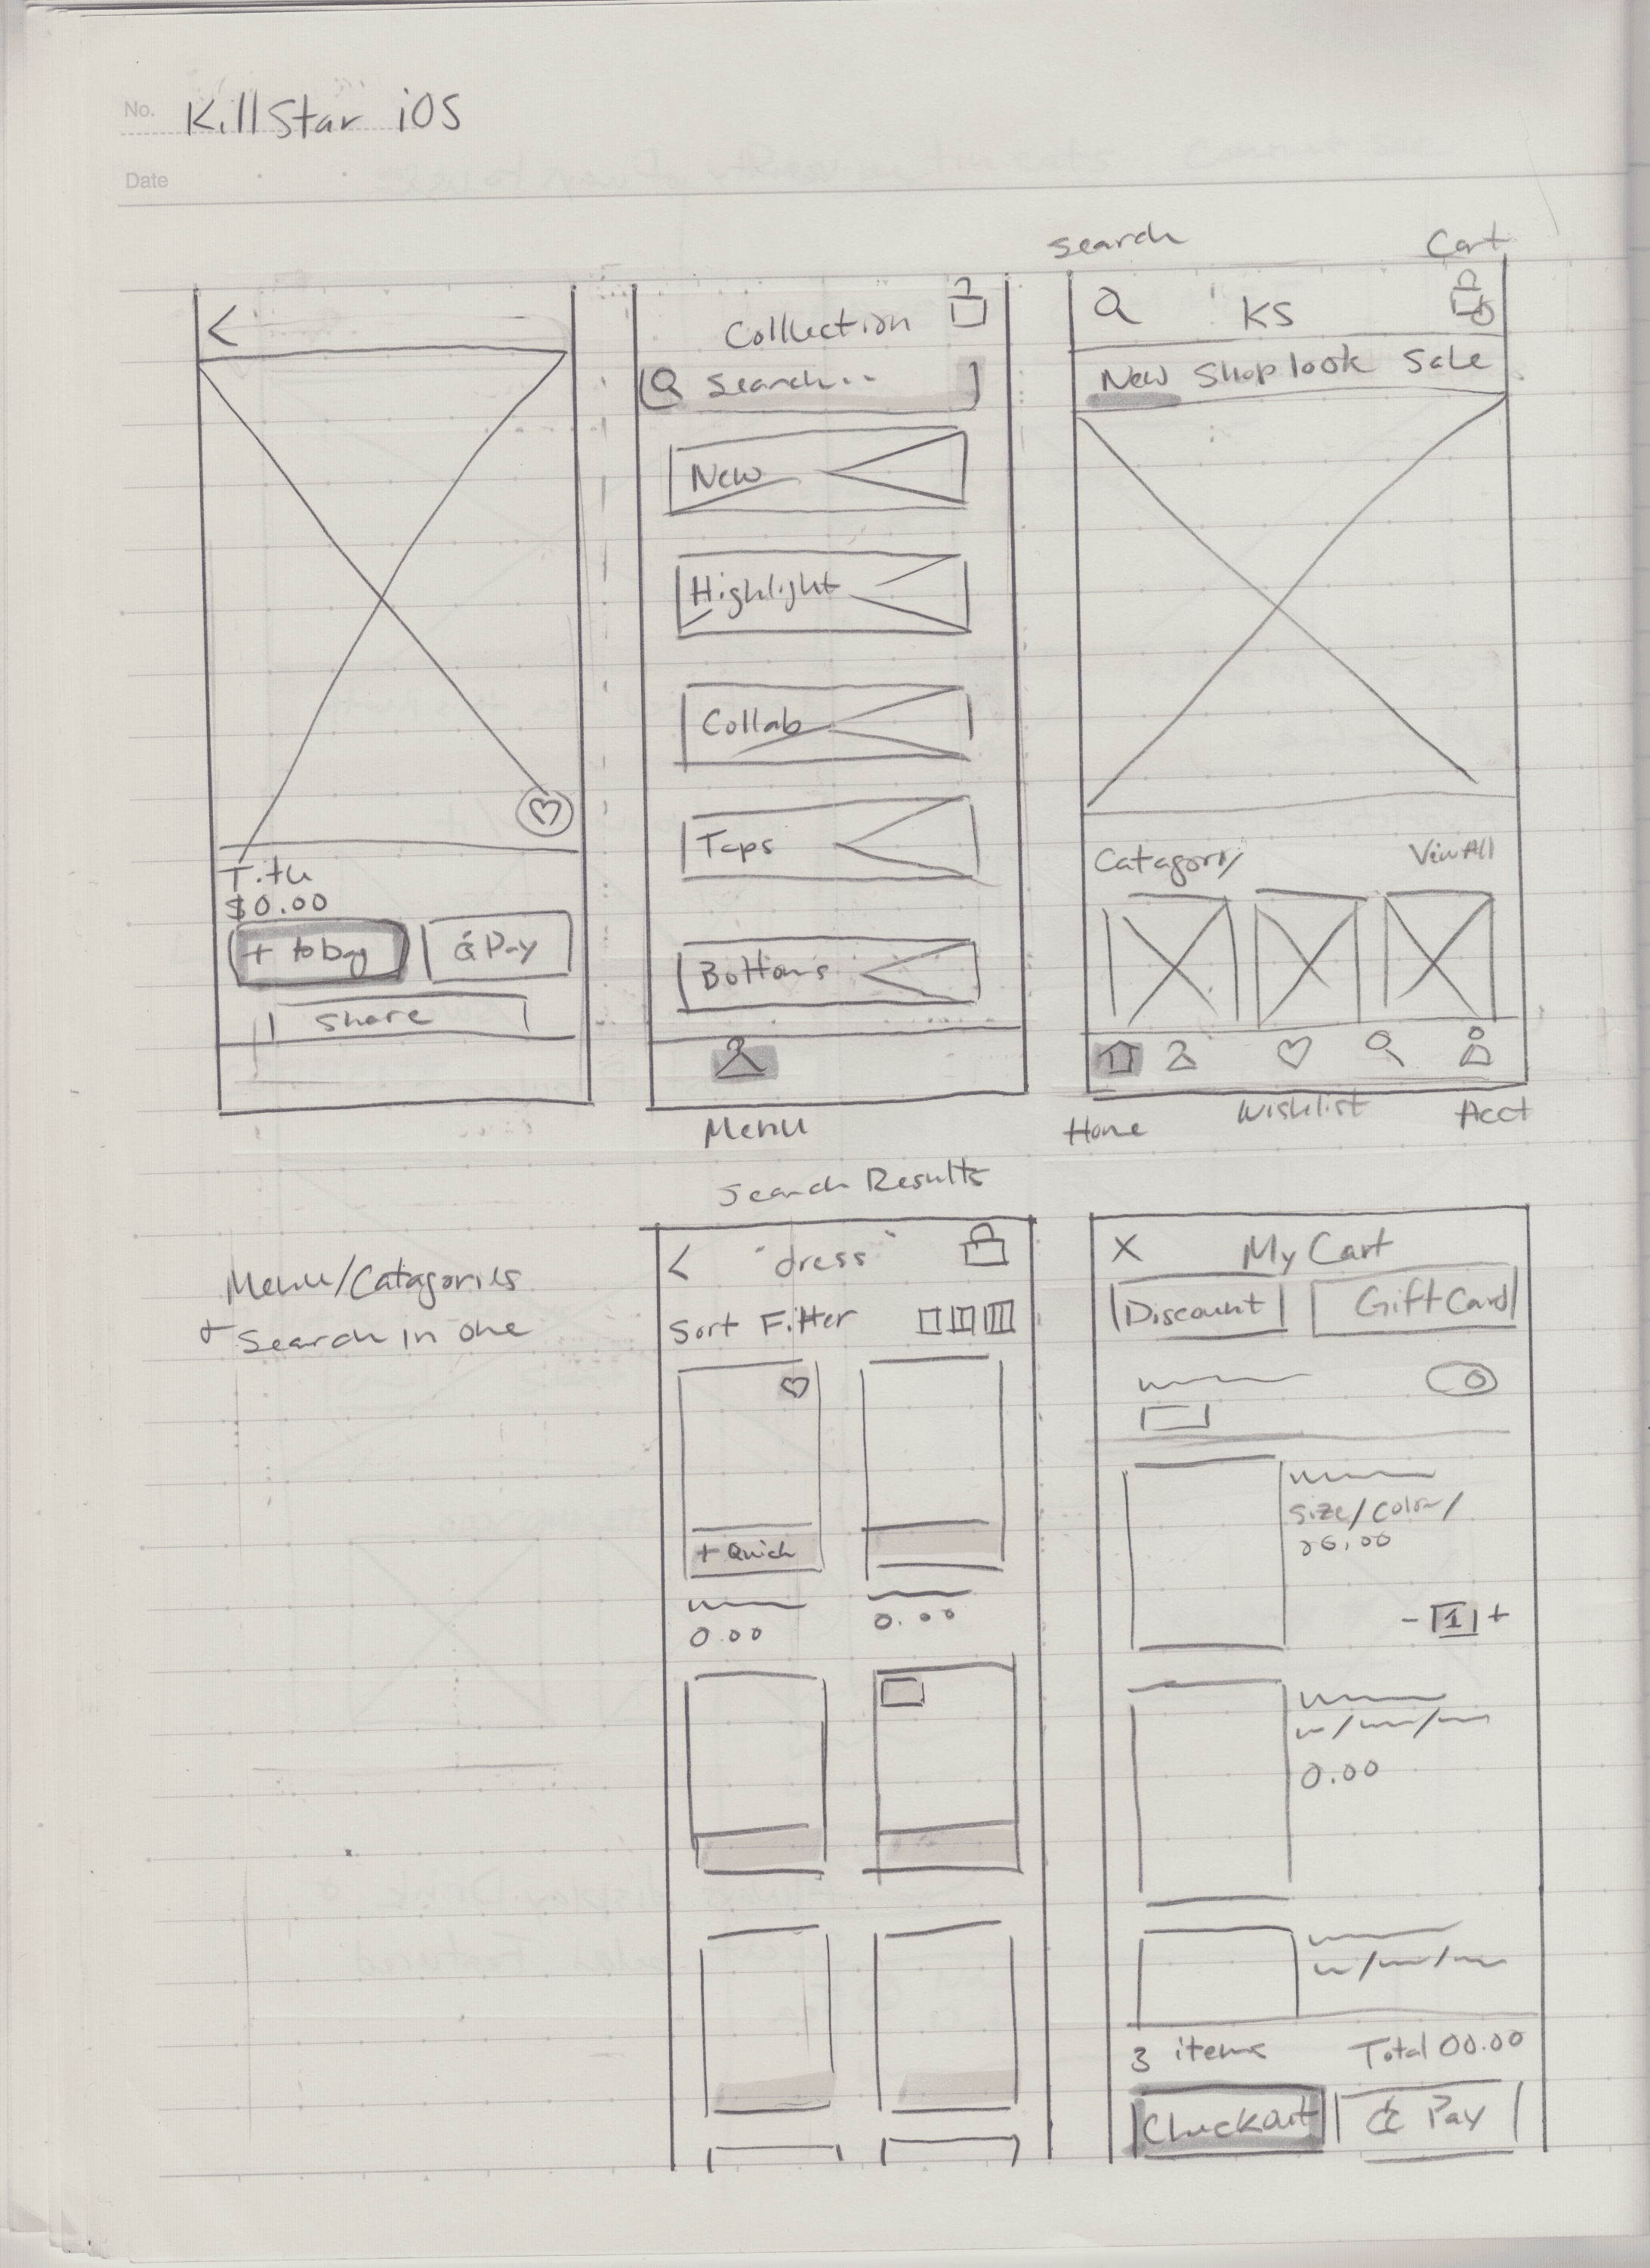 No. KillStar iOS
Date
Search
Cart
Title
$0.00
+ to bag
Pay
Share
Colluction
Search...
New
Highlight
Collab
Tops
Bottoms
Menu
KS
New Shop look Sale
Catagory
View All
Home
Wishlist
Acct
Menu/Catagories
+ Search in one
Search Results
< "dress"
Sort Filter
+ Quick
0.00
0.00
X My Cart
Discount
Gift Card
size/color/
00.00
- 1 +
0.00
3 items
Total 00.00
Checkout
Pay